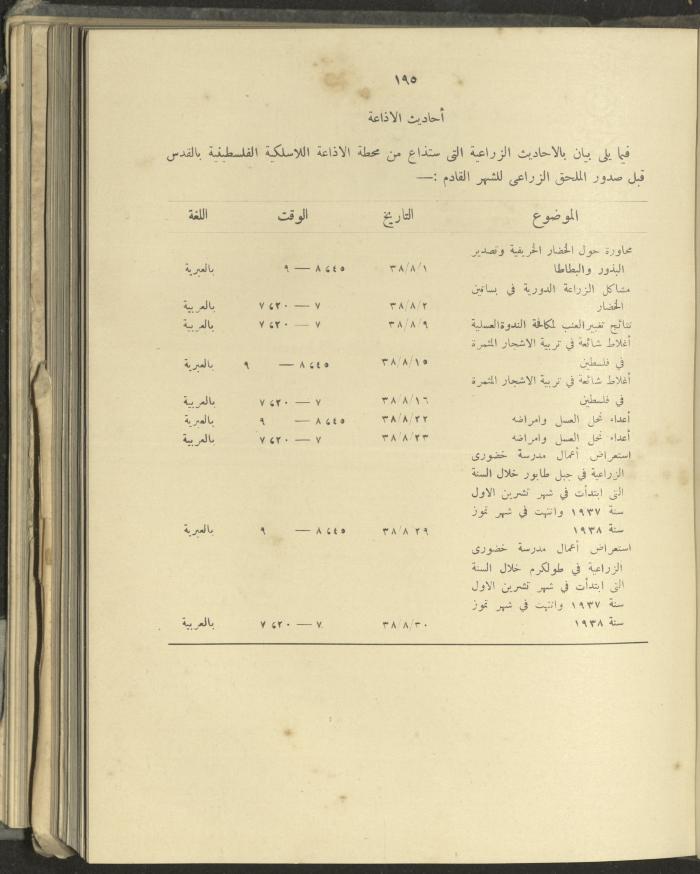 ١٩٥
أحاديث الاذاعة
فيما يلى بيان بالاحاديث الزراعية التى ستذاع من محطة الاذاعة اللاسلكية الفلسطينية بالقدس
قبل صدور الملحق الزراعى للشهر القادم :—
الموضوع التاريخ الوقت اللغة
محاورة حول الخضار الخريفية وتصدير
البذور والبطاطا ٣٨/٨/١ ٨،٤٥ — ٩ بالعبرية
مشاكل الزراعة الدورية في بساتين
الخضار ٣٨/٨/٢ ٧ — ٧،٢٠ بالعربية
نتائج تغبير العنب لمكافحة الندوة العسلية ٣٨/٨/٩ ٧ — ٧،٢٠ بالعربية
أغلاط شائعة في تربية الاشجار المثمرة
في فلسطين ٣٨/٨/١٥ ٨،٤٥ — ٩ بالعبرية
أغلاط شائعة في تربية الاشجار المثمرة
في فلسطين ٣٨/٨/١٦ ٧ — ٧،٢٠ بالعربية
أعداء نحل العسل وامراضه ٣٨/٨/٢٢ ٨،٤٥ — ٩ بالعبرية
أعداء نحل العسل وامراضه ٣٨/٨/٢٣ ٧ — ٧،٢٠ بالعربية
استعراض أعمال مدرسة خضورى
الزراعية في جبل طابور خلال السنة
التى ابتدأت في شهر تشرين الاول
سنة ١٩٣٧ وانتهت في شهر تموز
سنة ١٩٣٨ ٣٨/٨/٢٩ ٨،٤٥ — ٩ بالعبرية
استعراض أعمال مدرسة خضورى
الزراعية في طولكرم خلال السنة
التى ابتدأت في شهر تشرين الاول
سنة ١٩٣٧ وانتهت في شهر تموز
سنة ١٩٣٨ ٣٨/٨/٣٠ ٧ — ٧،٢٠ بالعربية